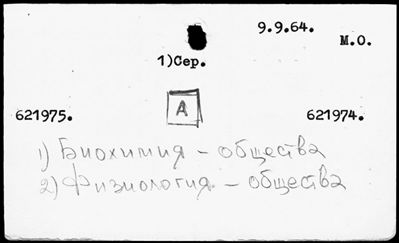 9.9.64.
М.О.
1)Сер.
621975. А 621974.
1) Биохимия – общества
2) Физиология – общества